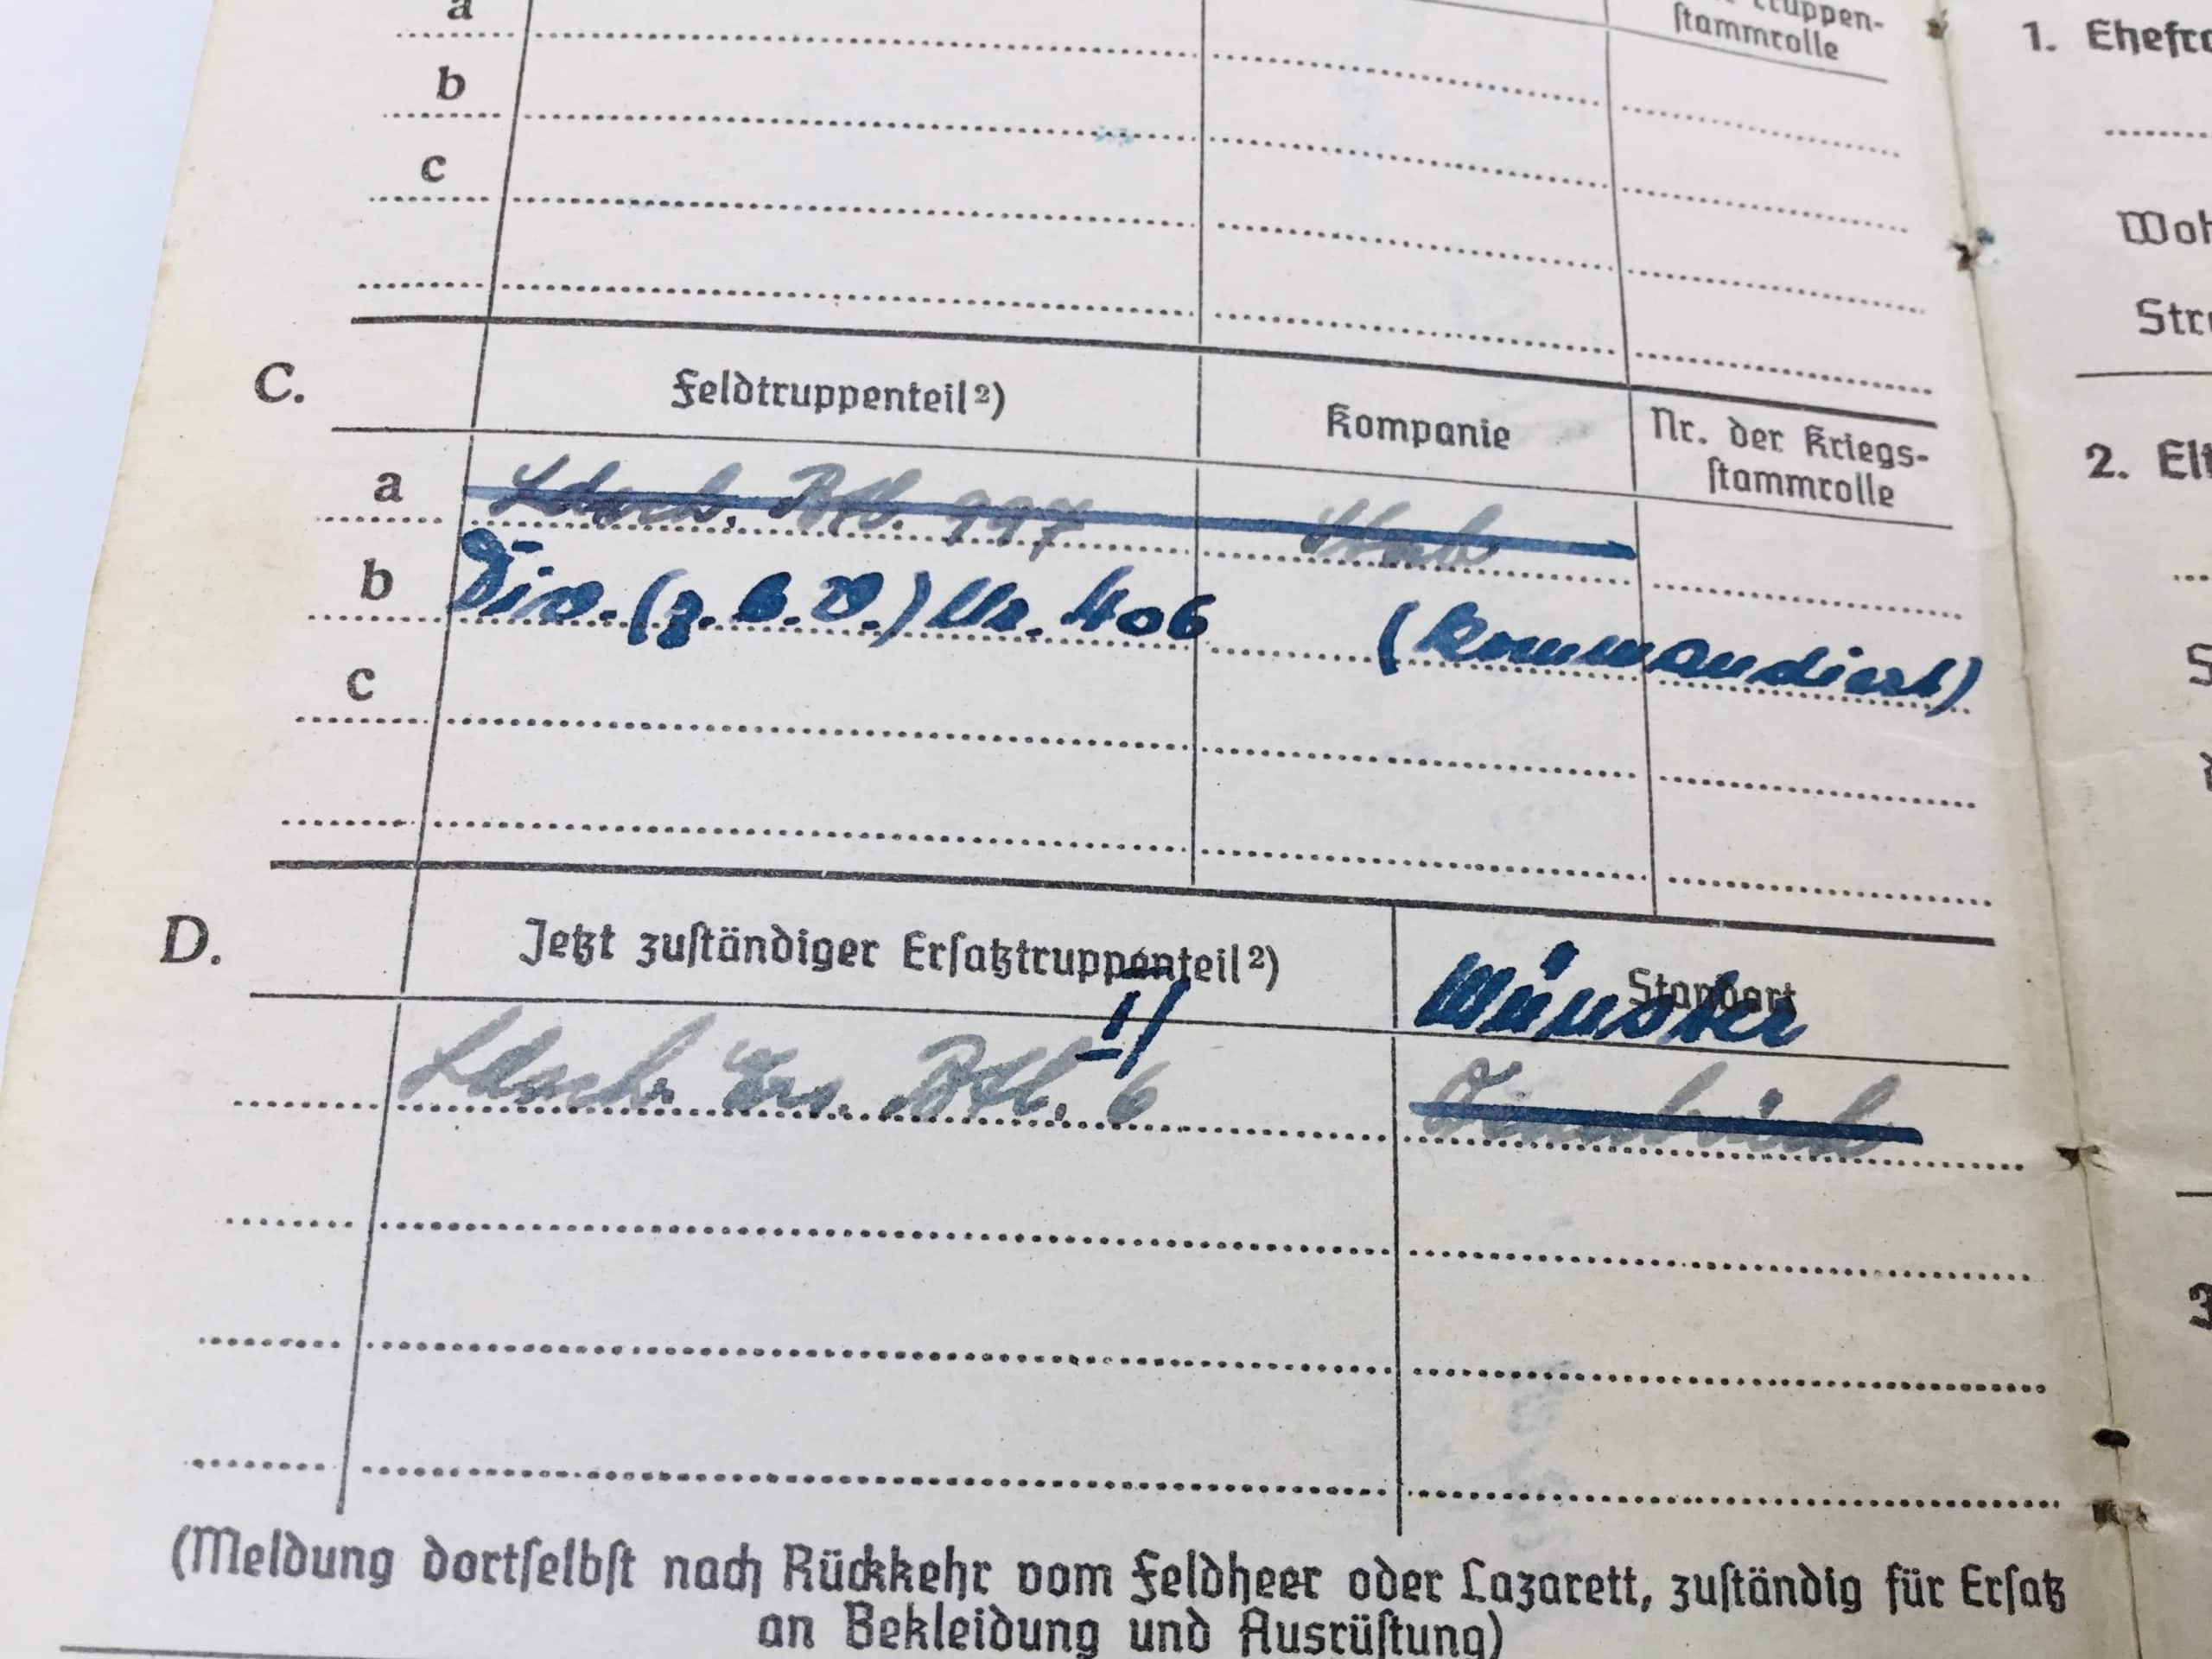 a
Truppen-
stammrolle
1. Ehefra
b
c
Woh
Str
C. Feldtruppenteil²) Kompanie Nr. der Kriegs-
stammrolle
2. Elt
a Ldsch. Btl. 997 Stab
b Div. (z. b. V.) Nr. 406 (kommandiert)
c
D. Jetzt zuständiger Ersatztruppenteil²) Standort
Münster
I/
Ldsch. Ers. Btl. 6
3
(Meldung dortselbst nach Rückkehr vom Feldheer oder Lazarett, zuständig für Ersatz
an Bekleidung und Ausrüstung)